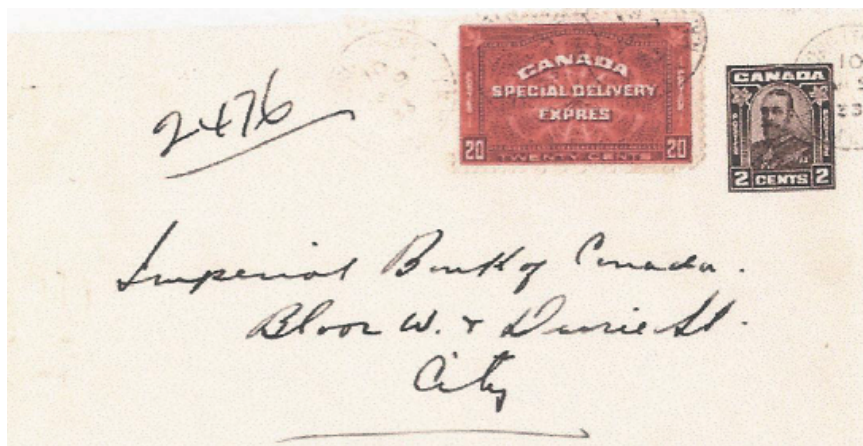 CANADA
SPECIAL DELIVERY
EXPRES
20 TWENTY CENTS 20
CANADA
2 CENTS 2
2476
Imperial Bank of Canada.
Bloor W. & Durie St.
City